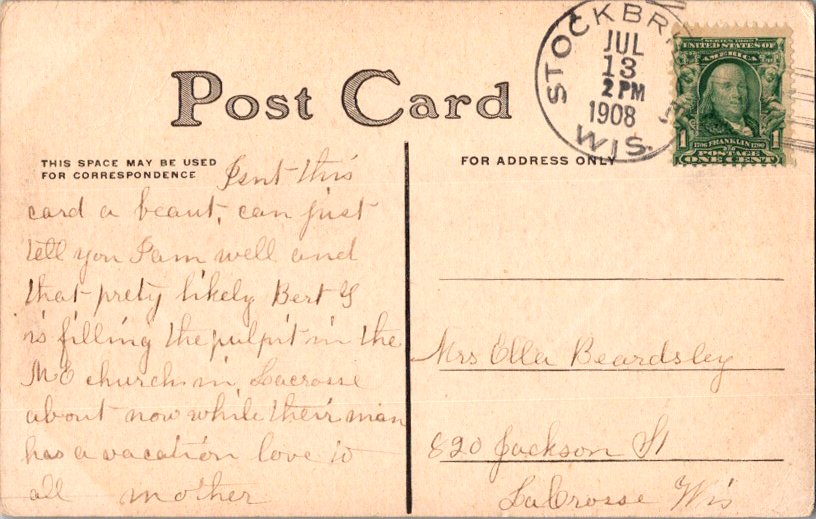 Post Card
STOCKBRI
JUL
13
2 PM
1908
WIS.
SERIES 1902
UNITED STATES OF
AMERICA
1 1706 FRANKLIN 1790 1
POSTAGE
ONE CENT
THIS SPACE MAY BE USED
FOR CORRESPONDENCE
FOR ADDRESS ONLY
Isnt this
card a beaut, can just
tell you I am well and
that prety likely Bert G
is filling the pulpit in the
M E church in Lacrosse
about now while their man
has a vacation love to
all mother
Mrs Ella Beardsley
820 Jackson St
LaCrosse Wis